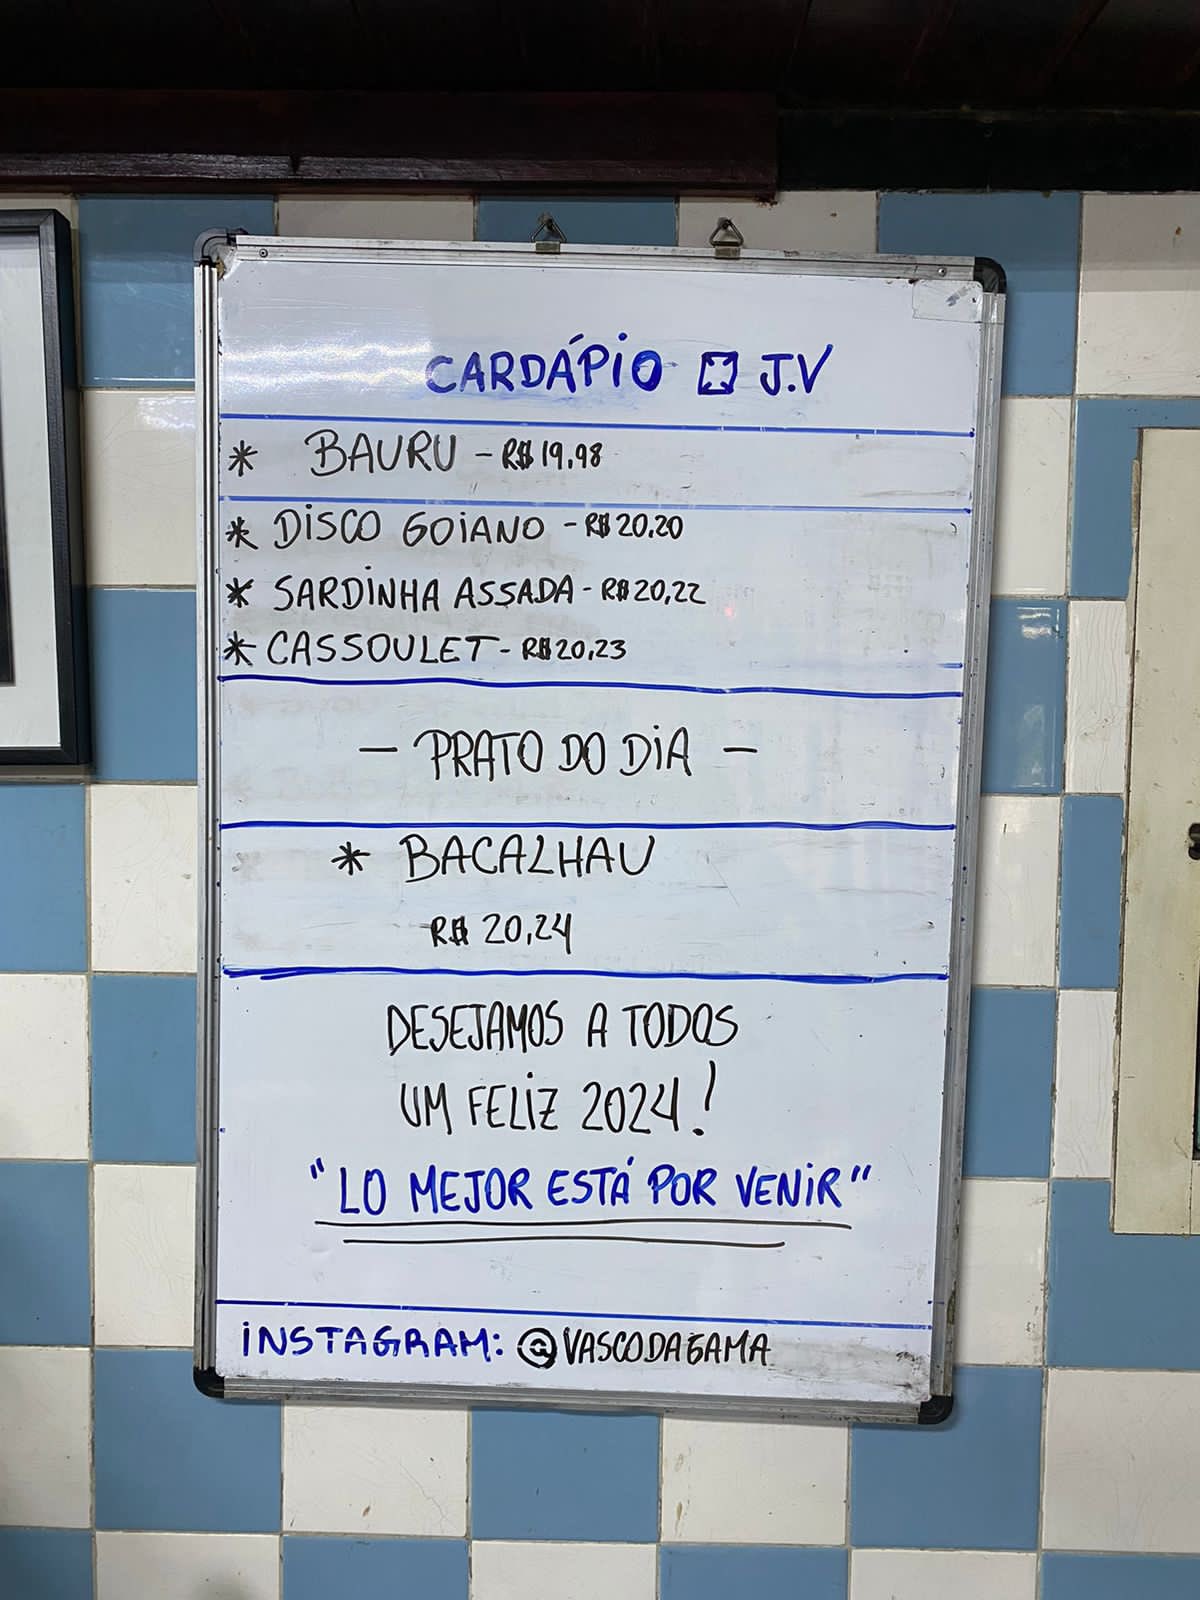 CARDÁPIO J.V
* BAURU - R$ 19,98
* DISCO GOIANO - R$ 20,20
* SARDINHA ASSADA - R$ 20,22
* CASSOULET - R$ 20,23
- PRATO DO DIA -
* BACALHAU
R$ 20,24
DESEJAMOS A TODOS
UM FELIZ 2024!
"LO MEJOR ESTÁ POR VENIR"
INSTAGRAM: @VASCODAGAMA